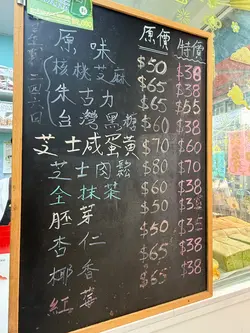 原價 特價
原味 $50 $38
核桃芝麻 $65 $38
朱古力 $65 $55
台灣黑糖 $60 $38
芝士咸蛋黃 $70 $60
芝士肉鬆 $80 $70
全抹茶 $60 $38
胚芽 $50
杏仁 $50
椰香 $38
紅莓 $65 $38